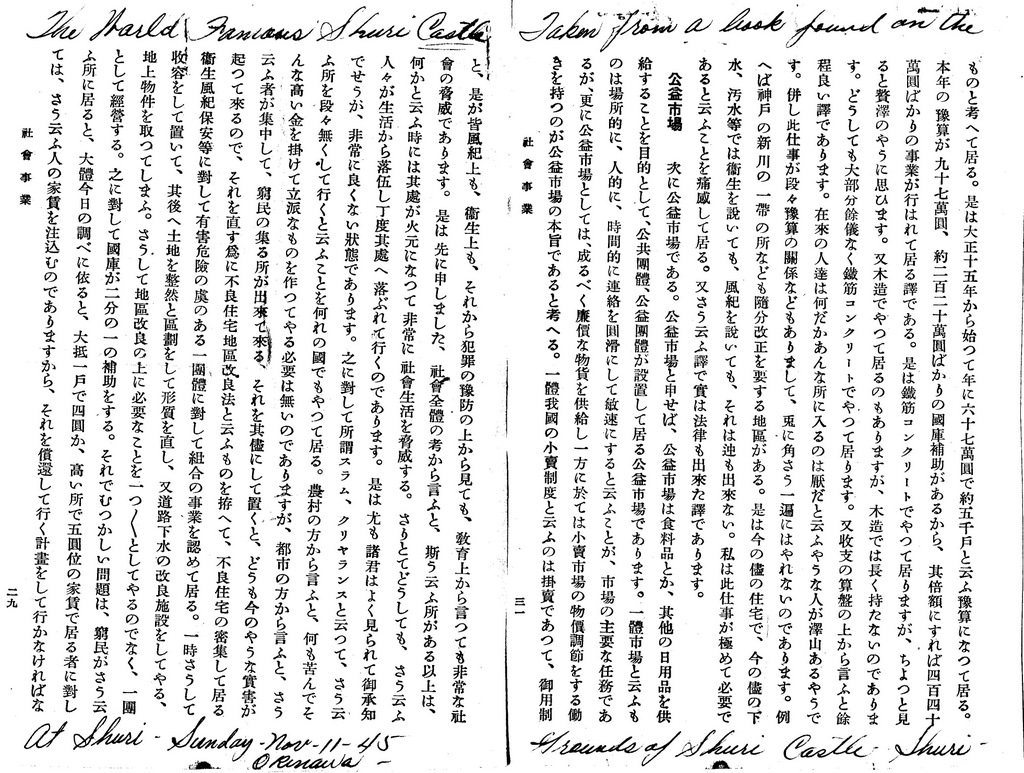 The World Famous Shuri Castle
Taken from a book found on the
ものと考へて居る。是は大正十五年から始つて年に六十七萬圓で約五千戸と云ふ豫算になつて居る。
本年の豫算が九十七萬圓、約二百二十萬圓ばかりの國庫補助があるから、其倍額にすれば四百四十
萬圓ばかりの事業が行はれて居る譯である。是は鐵筋コンクリートでやつて居りますが、ちよつと見
ると贅澤のやうに思ひます。又木造でやつて居るのもありますが、木造では長く持たないのでありま
す。どうしても大部分餘儀なく鐵筋コンクリートでやつて居ります。又收支の算盤の上から言ふと餘
程良い譯であります。在來の人達は何だかあんな所に入るのは厭だと云ふやうな人が澤山あるやうで
す。併し此仕事が段々豫算の關係などもありまして、兎に角さう一遍にはやれないのであります。例
へば神戸の新川の一帶の所なども隨分改正を要する地區がある。是は今の儘の住宅で、今の儘の下
水、汚水等では衞生を說いても、風紀を說いても、それは迚も出來ない。私は此仕事が極めて必要で
あると云ふことを痛感して居る。又さう云ふ譯で實は法律も出來た譯であります。
公益市場　次に公益市場である。公益市場と申せば、公益市場は食料品とか、其他の日用品を供
給することを目的として、公共團體、公益團體が設置して居る公益市場であります。一體市場と云ふも
のは場所的に、人的に、時間的に連絡を圓滑にして敏速にすると云ふことが、市場の主要な任務であ
るが、更に公益市場としては、成るべく廉價な物貨を供給し一方に於ては小賣市場の物價調節をする働
きを持つのが公益市場の本旨であると考へる。一體我國の小賣制度と云ふのは掛賣であつて、御用制
社會事業
三一
と、是が皆風紀上も、衞生上も、それから犯罪の豫防の上から見ても、敎育上から言つても非常な社
會の脅威であります。是は先に申しました、社會全體の考から言ふと、斯う云ふ所がある以上は、
何かと云ふ時には其處が火元になつて非常に社會生活を脅威する。さりとてどうしても、さう云ふ
人々が生活から落伍し丁度其處へ落ぶれて行くのであります。是は尤も諸君はよく見られて御承知
でせうが、非常に良くない狀態であります。之に對して所謂スラム、クリヤランスと云つて、さう云
ふ所を段々無くして行くと云ふことを何れの國でもやつて居る。農村の方から言ふと、何も苦んでそ
んな高い金を掛けて立派なものを作つてやる必要は無いのでありますが、都市の方から言ふと、さう
云ふ者が集中して、窮民の集る所が出來て來る、それを其儘にして置くと、どうも今のやうな實害が
起つて來るので、それを直す爲に不良住宅地區改良法と云ふものを拵へて、不良住宅の密集して居る
衞生風紀保安等に對して有害危險の虞のある一團體に對して組合の事業を認めて居る。一時さうして
收容をして置いて、其後へ土地を整然と區劃をして形質を直し、又道路下水の改良施設をしてやる、
地上物件を取つてしまふ。さうして地區改良の上に必要なことを一つ〱としてやるのでなく、一團
として經營する。之に對して國庫が二分の一の補助をする。それでむつかしい問題は、窮民がさう云
ふ所に居ると、大體今日の調べに依ると、大抵一戸で四圓か、高い所で五圓位の家賃で居る者に對し
ては、さう云ふ人の家賃を注込むのでありますから、それを償還して行く計畫をして行かなければな
社會事業
二九
At Shuri - Sunday - Nov - 11 - 45
Okinawa -
Grounds of Shuri Castle - Shuri -